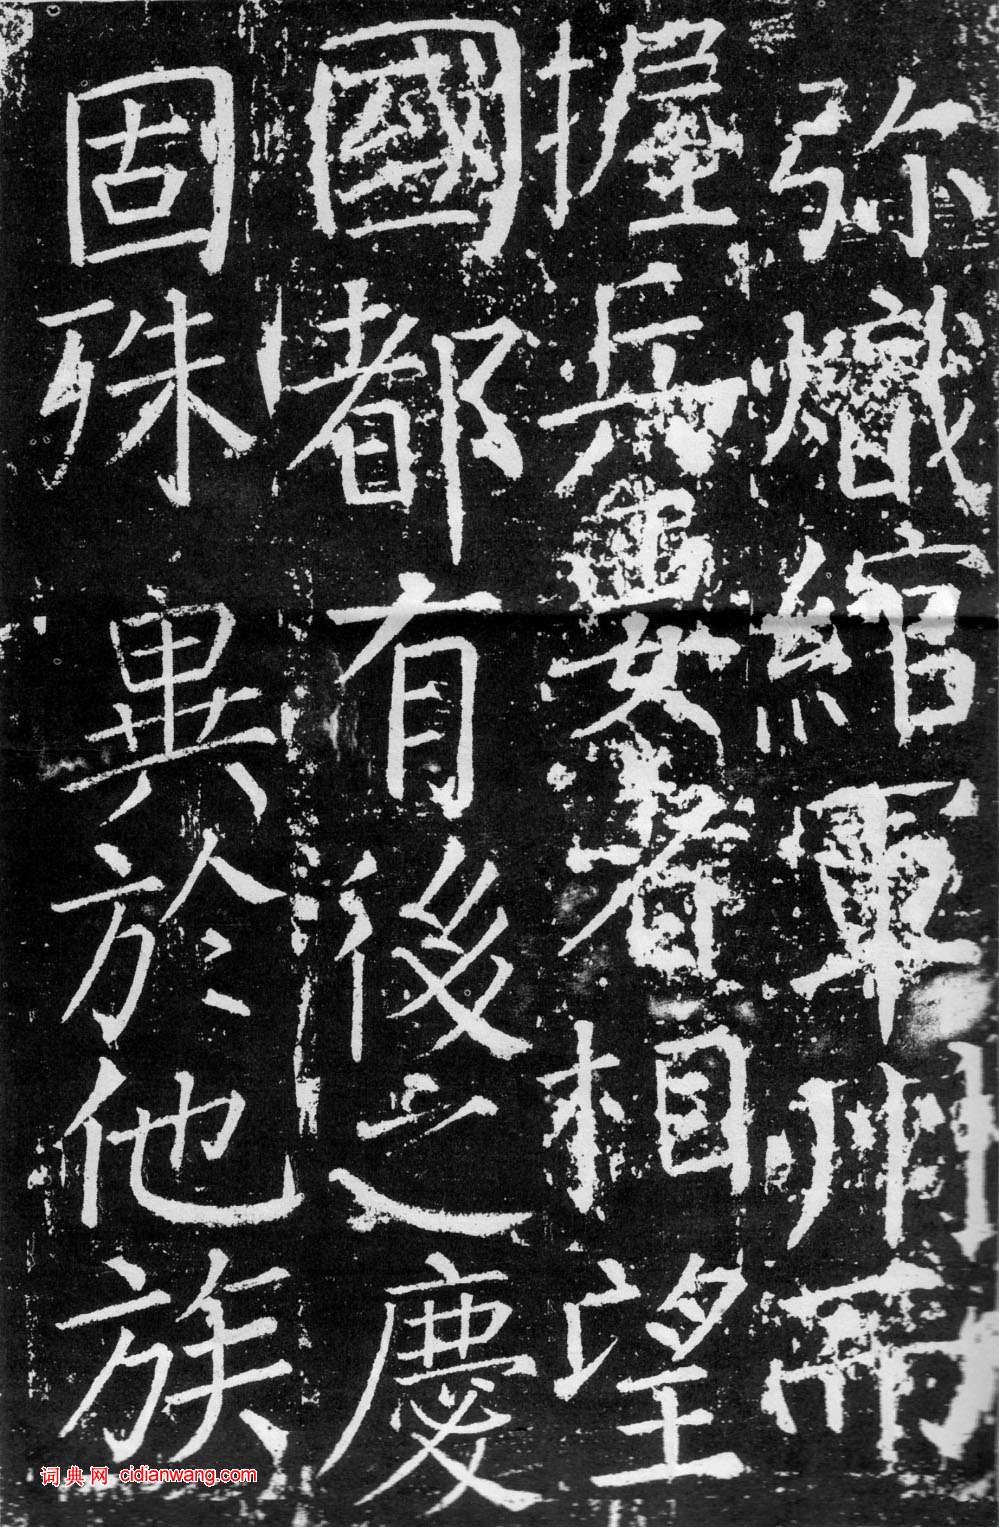 弥熾綰軍州而
握兵要者相望
國都有後之慶
固殊異於他族
词典网 cidianwang.com